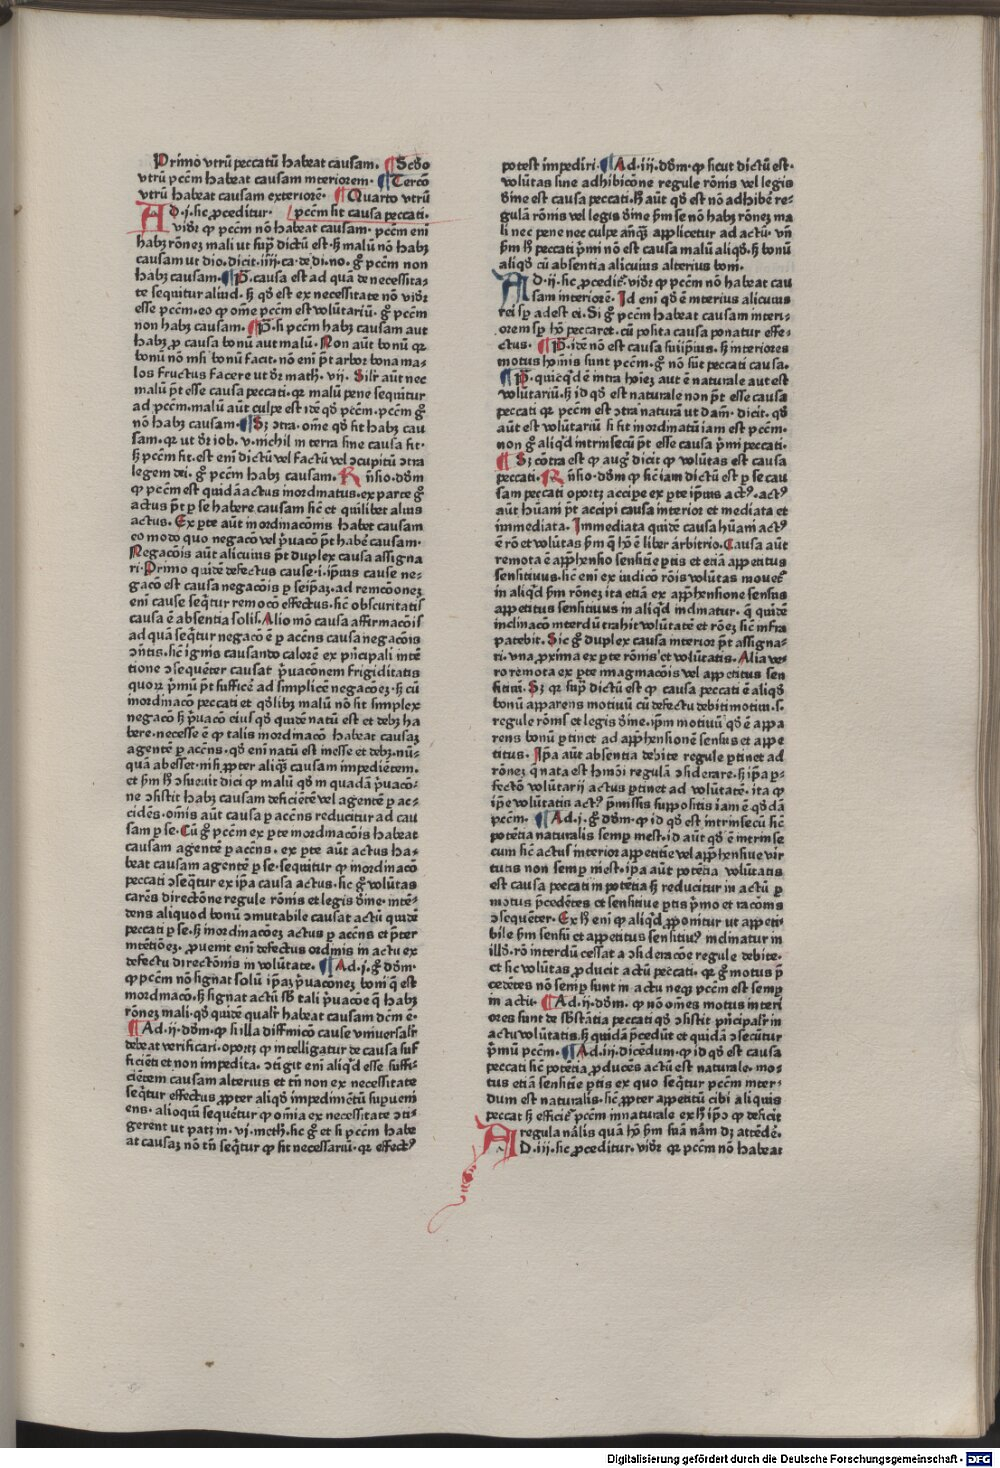 Primo vtrū peccatū habeat causam. ¶ Scđo
vtrū pccm habeat causam interiorem. ¶ Tercō
vtrū habeat causam exteriorē. ¶ Quarto vtrū
AD .j. sic ꝓceditur. pccm sit causa peccati.
vidr̄ ꝙ pccm nō habeat causam. pccm eni
habꝫ rōnez mali ut supͣ dictū est. sꝫ malū nō habꝫ
causam ut dio. dicit. iiij. ca. de di. no. gͦ pccm non
habꝫ causam. ¶ P̄. causa est ad quā de necessita-
te sequitur aliud. sꝫ qd̄ est ex necessitate nō vidr̄
esse pccm. eo ꝙ ome pccm est volūtariū. gͦ pccm
non habꝫ causam. ¶ P̄. si pccm habꝫ causam aut
habꝫ ꝓ causa bonū aut malū. Non aūt bonū qr
bonū nō nisi bonū facit. nō eni pn̄t arbor bona ma-
los fructus facere ut dr̄ math. vij. Silr̄ aūt nec
malū pt̄ esse causa peccati. qr malū pene sequitur
ad pccm. malū aūt culpe est idē qd̄ pccm. pccm gͦ
nō habꝫ causam. ¶ Sꝫ ↄtra. ome qd̄ fit habꝫ cau
sam. qr ut dr̄ iob. v. nichil in terra sine causa fit.
sꝫ pccm fit. est eni dictū vel factū vel ↄcupitū ↄtra
legem dei. gͦ pccm habꝫ causam. Rn̄sio. dd̄m
ꝙ pccm est quidā actus inordinatus. ex parte gͦ
actus pt̄ ꝑ se habere causam sic̄ et quilibet alius
actus. Ex ꝑte aūt inordinacōnis habet causam
eo modo quo negacō vel pͥuacō pt̄ habē causam.
Negacōis aūt alicuius pt̄ duplex causa assigna
ri. Primo quidē defectus cause. i. ipius cause ne-
gacō est causa negacōis ꝑ seipaꝫ. ad remcōnez
eni cause seqͥtur remocō effectus. sic̄ obscuritatis
causa ē absentia solis. Alio mō causa affirmacōis
ad quā seqͥtur negacō ē ꝑ accn̄s causa negacōis
ↄn̄tis. sic̄ ignis causando calorē ex pͥncipali intē
tione ↄsequēter causat pͥuacōnem frigiditatis
quorꝝ pͥmū pt̄ sufficē ad simplicē negacōez. sꝫ cū
inordinacō peccati et qd̄libꝫ malū nō sit simplex
negacō sꝫ pͥuacō eius qd̄ quidē natū est et debꝫ ha
bere. necesse ē ꝙ talis inordinacō habeat causaꝫ
agentē ꝑ accn̄s. qd̄ eni natū est inesse et debꝫ. nū-
quā abesset. nisi ꝓpter aliqͣꝫ causam impediētem.
et ẜm hͦ ↄsueuit dici ꝙ malū qd̄ in quadā pͥuacō-
ne ↄsistit habꝫ causam deficiētē vel agentē ꝑ ac-
cidēs. om̄is aūt causa ꝑ accn̄s reducitur ad cau
sam ꝑ se. Cū gͦ pccm ex ꝑte inordinacōnis habeat
causam agentē ꝑ accn̄s. ex ꝑte aūt actus ha-
beat causam agentē ꝑ se. sequitur ꝙ inordinacō
peccati ↄseqͥtur ex ipa causa actus. sic gͦ volūtas
carēs directōne regule rōnis et legis dīne. intē-
dens aliquod bonū ↄmutabile causat actū quidē
peccati ꝑ se. sꝫ inordinacōez actus ꝑ accn̄s et pͤter
intētiōez. ꝓuenit eni defectus ordinis in actu ex
defectu directōnis in volūtate. ¶ Ad .j. gͦ dd̄m.
ꝙ pccm nō signat̉ solū ipaꝫ pͥuacōnez boni q̄ est
inordinacō. sꝫ signat actū sb̄ tali pͥuacōe q̄ habꝫ
rōnez mali. qd̄ quidē qualr̄ habeat causam dcm ē.
¶ Ad .ij. dd̄m. ꝙ si illa diffinicō cause vniuersalr̄
debeat verificari. oportꝫ ꝙ intelligatur de causa suf
ficiēti et non impedita. ↄtigit eni aliqͥd esse suffi-
ciētem causam alterius et tn̄ non ex necessitate
seqͥtur effectus ꝓpter aliqd̄ impedimētū supueni
ens. alioquī sequētur ꝙ om̄ia ex necessitate ↄti-
gerēnt ut patꝫ in. vj. meth. sic gͦ et si pccm habe
at causaꝫ nō tn̄ seqͥtur ꝙ sit necessariū. qr effectꝰ
potest impediri. ¶ Ad .iij. dd̄m. ꝙ sicut dictū est.
volūtas sine adhibicōne regule rōnis vel legis
dīne est causa peccati. hͦ aūt qd̄ est nō adhibē re-
gulā rōnis vel legis dīne ẜm se nō habꝫ rōnez ma
li nec pene nec culpe anͣqͣꝫ applicetur ad actū. vn̄
ẜm hͦ peccati pͥmi nō est causa malū aliqd̄. sꝫ bonū
aliqd̄ cū absentia alicuius alterius boni.
AD .ij. sic ꝓcedit̉. vidr̄ ꝙ pccm nō habeat cau
sam interiorē. Id eni qd̄ ē interius alicuius
rei sp̄ adest ei. Si gͦ pccm habeat causam interi-
orem sp̄ hō peccaret. cū posita causa ponatur effe-
ctus. ¶ P̄. idē nō est causa suiipius. sꝫ interiores
motus hoīnis sunt pccm. gͦ nō sūt peccati causa.
¶ P̄. quicqͥd ē intra hoīez aut ē naturale aut est
volūtariū. sꝫ id qd̄ est naturale non pt̄ esse causa
peccati qr pccm est ↄtra naturā ut dam̄. dicit. qd̄
aūt est volūtariū si sit inordinatū iam est pccm.
non gͦ aliqͥd intrinsecū pt̄ esse causa pͥmi peccati.
¶ Sꝫ cōtra est ꝙ augꝰ dicit ꝙ volūtas est causa
peccati. Rn̄sio. dd̄m ꝙ sic̄ iam dictū est ꝑ se cau
sam peccati oportꝫ accipe ex ꝑte ipius actꝰ. actꝰ
aūt hūani pt̄ accipi causa interior et mediata et
immediata. Immediata quidē causa hūani actꝰ
ē rō et volūtas ẜm q̄ hō ē liber arbitrio. Causa aūt
remota ē apphēnsio sensitie ꝑtis et etiā appetitus
sensitiuus. sic̄ eni ex iudicō rōis volūtas mouet̉
in aliqͥd ẜm rōnez ita etiā ex apphēnsione sensus
appetitus sensitiuus in aliqͥd inclinatur. q̄ quidē
inclinacō interdū trahit volūtatē et rōez sic̄ infra
patebit. Sic gͦ duplex causa interior pt̄ assigna-
ri. vna ꝓxima ex ꝑte rōnis et volūtatis. Alia ve-
ro remota ex ꝑte ymaginacōis vel appetitus sen
sitiui. Sꝫ qr supͣ dictū est ꝙ causa peccati ē aliqd̄
bonū apparens motiuū cū defectu debiti motiui. s.
regule rōnis et legis dīne. ipm motiuū qd̄ ē appa
rens bonū ꝑtinet ad apphēnsionē sensus et appe
titus. Ipa aūt absentia debite regule ꝑtinet ad
rōnez q̄ nata est hmōi regulā ↄsiderare. sꝫ ipa ꝑ-
fectō volūtarij actus ꝑtinet ad volūtatē. ita ꝙ
ipe volūtatis actꝰ pͥmissis suppositis iam ē qd̄dā
pccm. ¶ Ad .j. gͦ dd̄m. ꝙ id qd̄ est intrinsecū sic̄
potētia naturalis semꝑ inest. id aūt qd̄ ē intrinse
cum sic̄ actus interior appetitie vel apphēnsiue vir
tutis non semꝑ inest. ipa aūt potētia volūtatis
est causa peccati in potētia sꝫ reducitur in actū ꝑ
motus pͤcedētes et sensitiue ꝑtis pͥmo et racōnis
ↄsequēter. Ex hͦ eni ꝙ aliqͥd ꝓponitur ut appeti-
bile ẜm sensū et appetitus sensitiuꝰ inclinatur in
illd̄. rō interdū cessat a ↄsideracōe regule debite.
et sic volūtas ꝓducit actū peccati. qr gͦ motus pͤ
cedētes nō semꝑ sunt in actu neqꝫ pccm est semꝑ
in actu. ¶ Ad .ij. dd̄m. ꝙ nō om̄es motus interi
ores sunt de sb̄stātia peccati qd̄ ↄsistit pͥncipalr̄ in
actu volūtatis. sꝫ quidā pͤcedūt et quidā ↄsecūtur
pͥmū pccm. ¶ Ad .iij. dicēdum. ꝙ id qd̄ est causa
peccati sic̄ potētia ꝓducēs actū est naturale. mo-
tus etiā sensitie ꝑtis ex quo seqͥtur pccm inter-
dum est naturalis. sic̄ ꝓpter appetitū cibi aliquis
peccat sꝫ efficit̉ pccm innaturale ex hͦ ipō ꝙ deficit
a regula nālis quā hō ẜm suā nām dꝫ attēdē.
AD .iij. sic ꝓceditur. vidr̄ qr pccm nō habeat
Digitalisierung gefördert durch die Deutsche Forschungsgemeinschaft - DFG